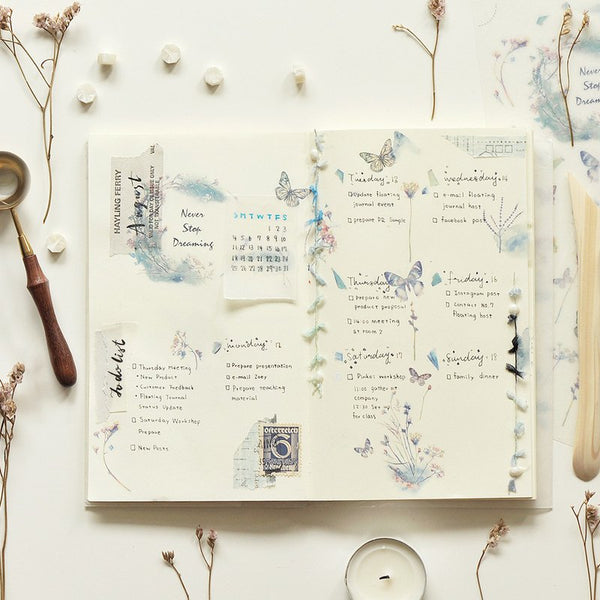 HAYLING FERRY
August
Never
Stop
Dreaming
S M T W T F S
1 2 3
4 5 6 7 8 9 10
11 12 13 14 15 16 17
18 19 20 21 22 23 24
25 26 27 28 29 30 31
To do list
Thursday Meeting
• New Product
• Customer Feedback
• Floating Journal
Status Update
Saturday Workshop
Prepare
New Posts
Monday 12
Prepare presentation
e-mail Zoey
Prepare teaching
material
österreich
6
Tuesday 13
Update floating
journal event
prepare PZ sample
Wednesday 14
e-mail floating
journal host
facebook post
Thursday
Prepare new
product proposal
14:00 meeting
at room 7
Friday 16
Instagram post
Contact No.7
floating host
Saturday 17
workshop
11:00 gather at
company
17:30
for class
Sunday 18
family dinner
Never
Stop
Dreaming